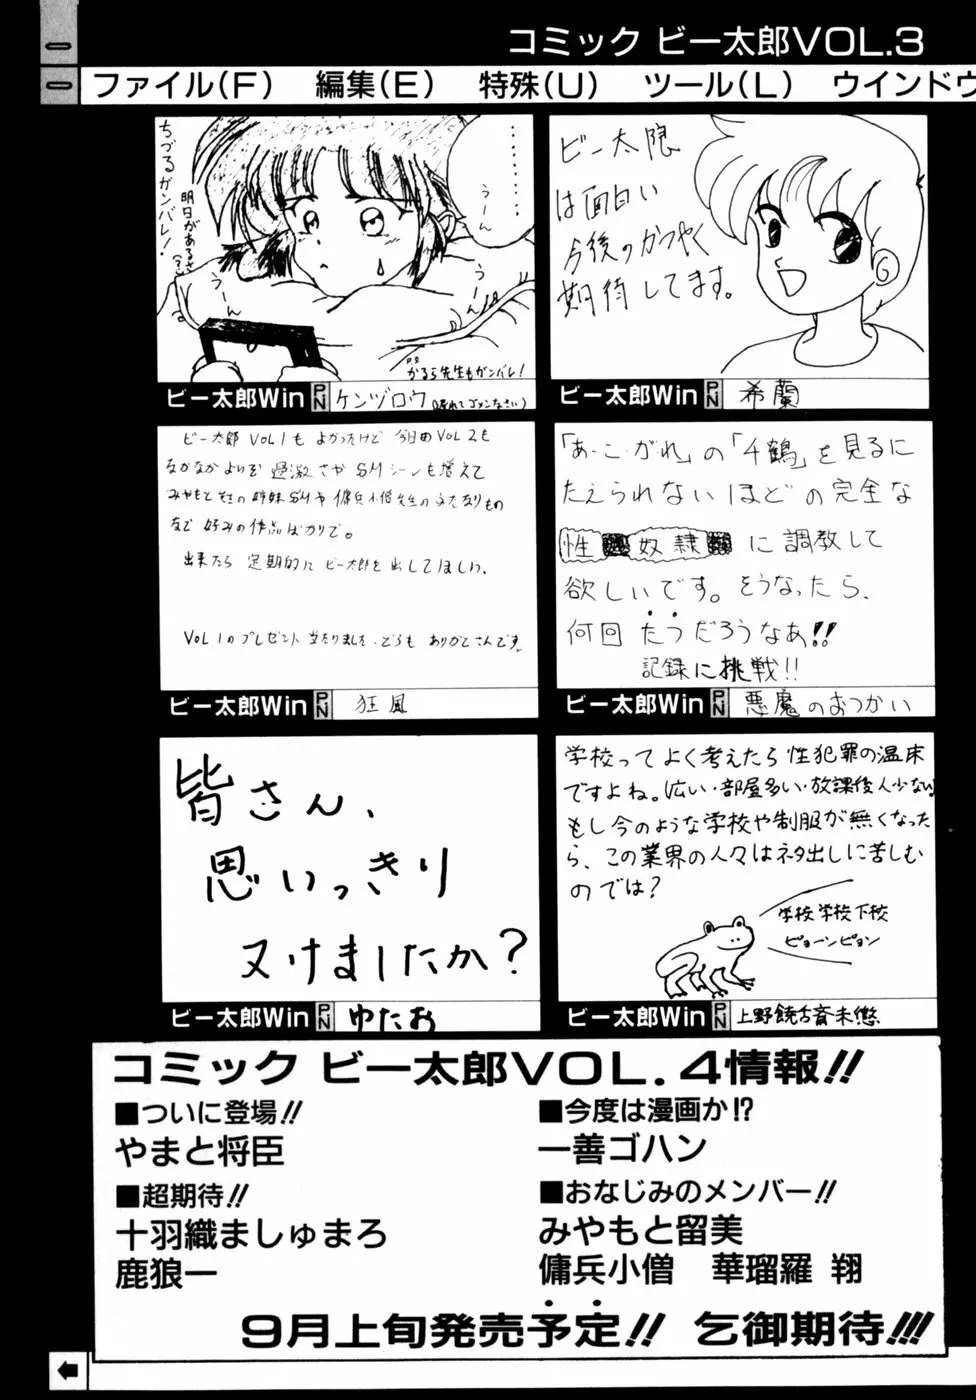 コミック ビー太郎VOL.3
ファイル(F) 編集(E) 特殊(U) ツール(L) ウインドウ
ちづるガンバレ!
明日があるさ
うーん
うーん
P.S
かるら先生もガンバレ!
ビー太郎Win PN ケンヅロウ(遅れてゴメンなさい)
ビー太限
は面白い
今後のかつやく
期待してます。
ビー太郎Win PN 希蘭
ビー太郎 VOL1も よかったけど 今回のVOL2も
なかなかよいぞ 過激さや SMシーンも増えて
みやもと先生の姉妹SMや 傭兵小僧先生のふたなりもの
など 好みの作品ばかりで。
出来たら 定期的に ビー太郎を出してほしい。
VOL1のプレゼント 当たりました、どうも ありがとさんです。
ビー太郎Win PN 狂風
「あ・こ・がれ」の「千鶴」を見るに
たえられないほどの完全な
性奴隷に調教して
欲しいです。そうなったら、
何回たつだろうなあ!!
記録に挑戦!!
ビー太郎Win PN 悪魔のおつかい
皆さん、
思いっきり
ヌけましたか?
ビー太郎Win PN ゆたお
学校って よく考えたら 性犯罪の温床
ですよね。広い・部屋多い・放課後人少ない
もし今のような学校や制服が無くなった
ら、この業界の人々はネタ出しに苦しむ
のでは?
学校学校下校
ピョーンピョン
ビー太郎Win PN 上野饒舌斉未悠
コミック ビー太郎VOL.4情報!!
■ついに登場!!
やまと将臣
■超期待!!
十羽織ましゅまろ
鹿狼一
■今度は漫画か!?
一善ゴハン
■おなじみのメンバー!!
みやもと留美
傭兵小僧 華瑠羅 翔
9月上旬発売予定!! 乞御期待!!!